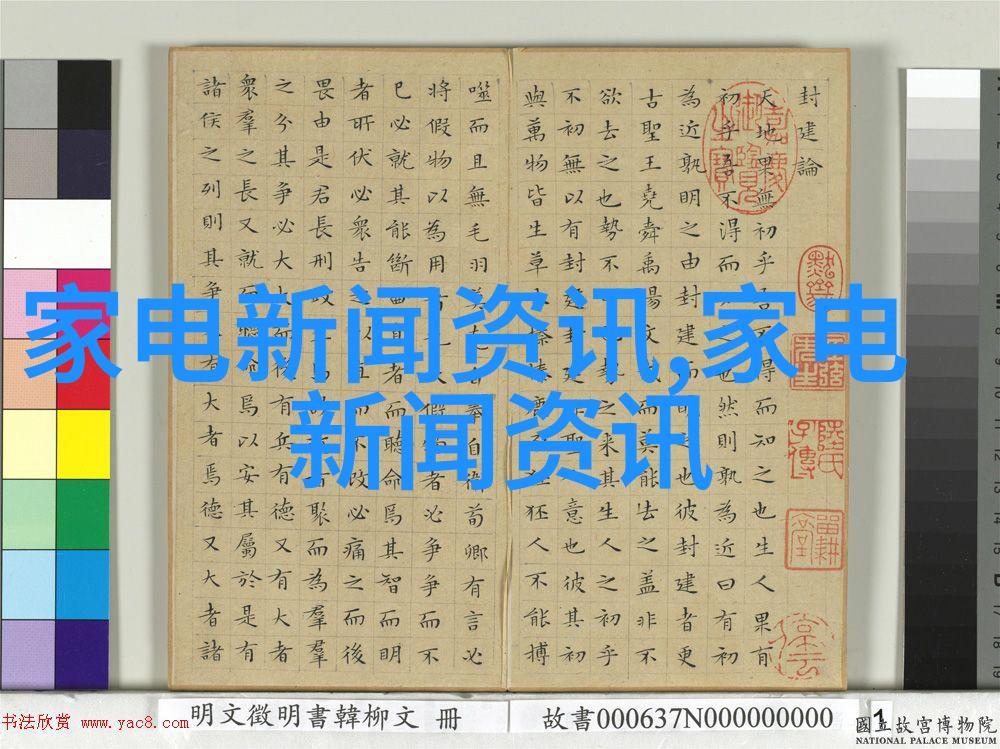 封建論
天地果無初乎吾不得而知之也生人果有
初乎吾不得而
然則孰為近曰有初
為近孰明之由封建而明
也彼封建者更
古聖王堯舜禹湯文
而莫能去之蓋非不
欲去之也勢不
之来其生人之初乎
不初無以有封建封建
意也彼其初
與萬物皆生草木榛
狉人不能搏
噬而且無毛羽莫
奉自衛荀卿有言必
將假物以為用
者必爭爭而不
已必就其能斷曲直者而聽命焉其智而明
者所伏必眾告之以直而不改必痛之而後
畏由是君長刑政
聚而為羣
之分其爭必大大而後有兵有德又有大者
衆羣之長又就而聽命焉以安其屬於是有
諸侯之列則其爭
有大者焉德又大者諸
家电新闻资讯,家电
新闻资讯
明文徵明書韓柳文 冊
故書000637N000000000
1
國立故宮博物院
NATIONAL PALACE MUSEUM
书法欣赏 www.yac8.com